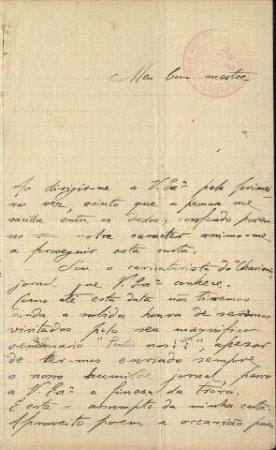 Meu bom mestre
Ao dirigir-me a V. Exª pela primei-
ra vez, sinto que a penna me
vacilla entre os dedos; confiado porem
no seu nobre caracter animo-me
a proseguir esta carta.
Sou o caricaturista do "Charivari"
jornal que V. Exª conhece.
Como até esta data não tivemos
ainda a subida honra de sermos
visitados pelo seu magnifico
semanario "Pontos nos i i", apesar
de ter-mos enviado sempre
o nosso humilde jornal, peço
a V. Exª a fineza da troca.
É este - assumpto da minha carta.
Aproveito porem a occasião para